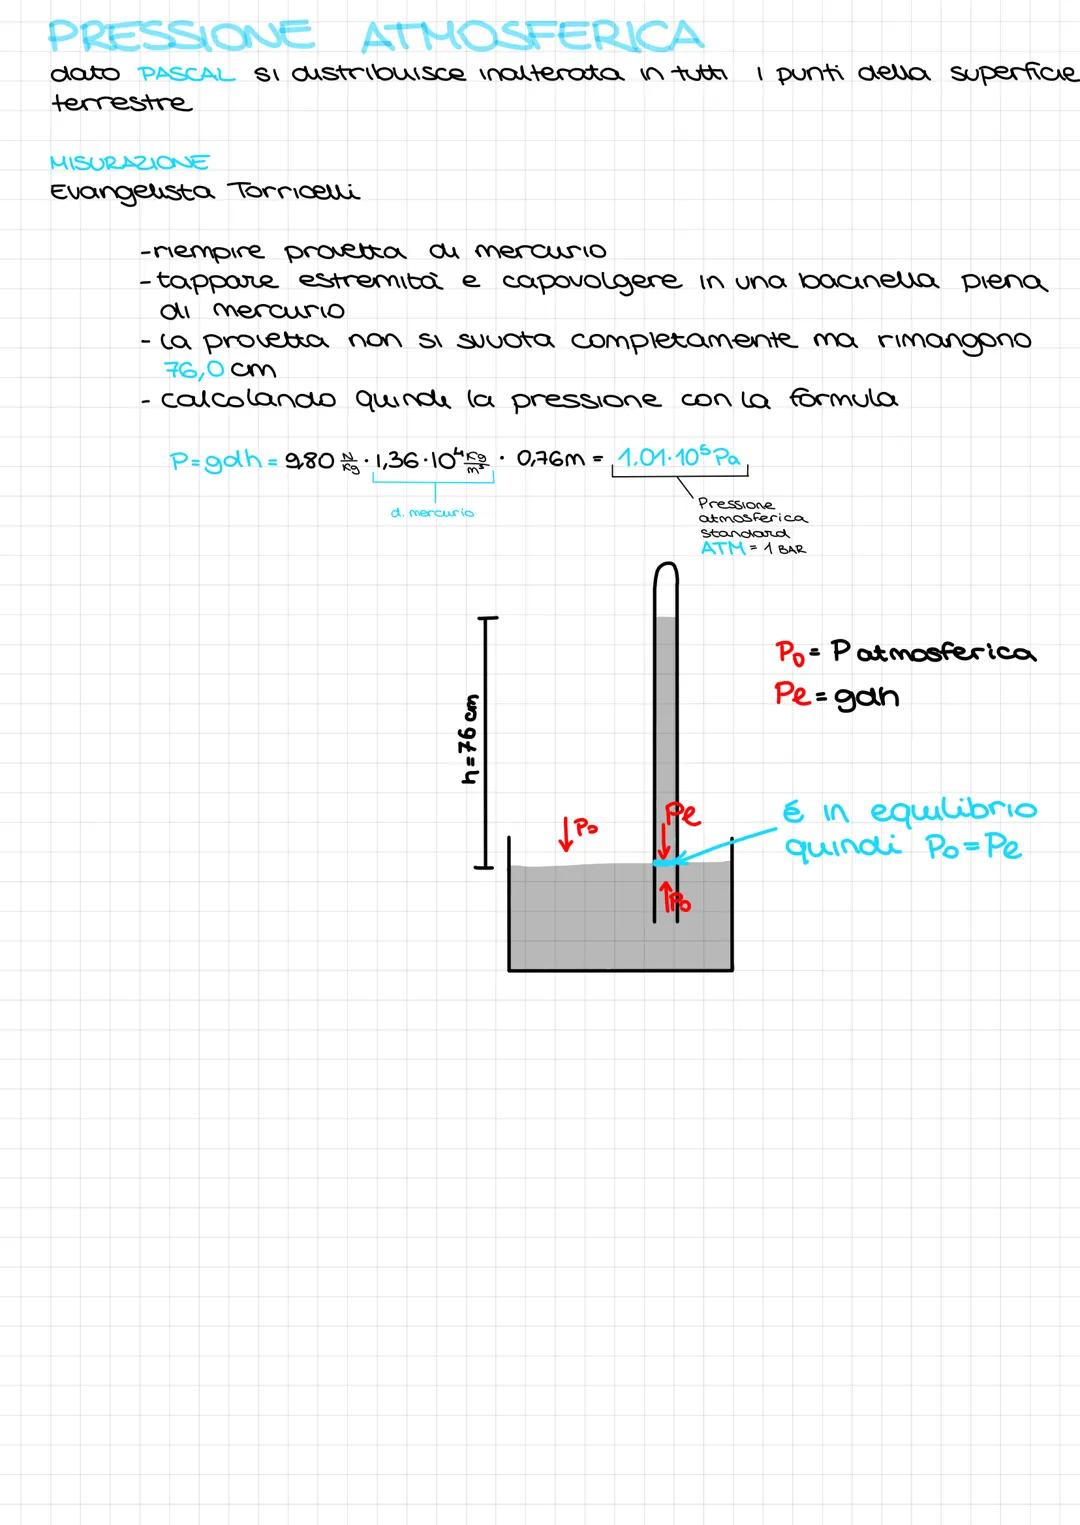 PRESSIONE ATMOSFERICA
dato PASCAL si distribuisce inalterata in tutti i punti della superficie
terrestre
MISURAZIONE
Evangelista Torricelli
-riempire provetta di mercurio
-tappare estremità e capovolgere in una bacinella piena
di mercurio
- la provetta non si svuota completamente ma rimangono
76,0 cm
- calcolando quindi la pressione con la formula
P=gdh = 9,80 N/Kg · 1,36·10⁴ Kg/m³ · 0,76m = 1.01·10⁵ Pa
d. mercurio
Pressione
atmosferica
standard
ATM = 1 BAR
h=76 cm
P₀ = P atmosferica
Pe = gdh
P₀
Pe
P₀
É in equilibrio
quindi P₀=Pe